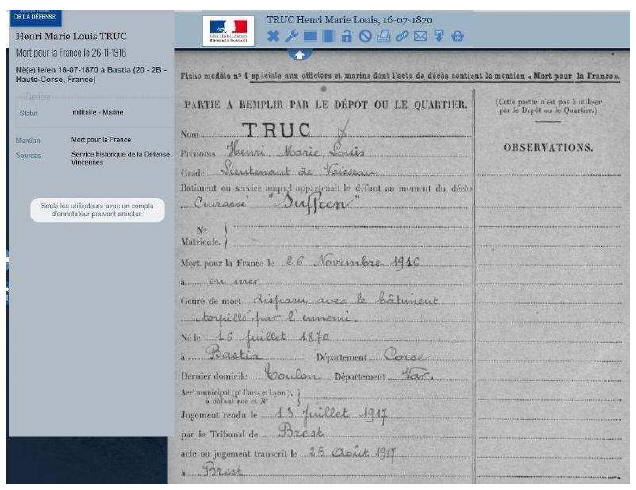 DE LA DÉFENSE
Henri Marie Louis TRUC
Mort pour la France le 26-11-1916
Né(e) le/en 16-07-1870 à Bastia (20 - 2B - Haute-Corse, France)
Statut militaire - Marine
Mention Mort pour la France
Sources Service historique de la Défense Vincennes
Seuls les utilisateurs avec un compte d'annotateur peuvent annoter
TRUC Henri Marie Louis, 16-07-1870
Fiche modèle n° 1 spéciale aux officiers et marins dont l'acte de décès contient la mention « Mort pour la France ».
PARTIE A REMPLIR PAR LE DÉPOT OU LE QUARTIER.
(Cette partie n'est pas à utiliser par le Dépôt ou le Quartier.)
OBSERVATIONS.
Nom TRUC
Prénoms Henri Marie Louis
Grade Lieutenant de Vaisseau
Bâtiment ou service auquel appartenait le défunt au moment du décès
Cuirassé "Suffren"
N°
Matricule.
Mort pour la France le 26 Novembre 1916
à en mer
Genre de mort disparu avec le bâtiment
torpillé par l'ennemi.
Né le 16 juillet 1870
à Bastia Département Corse
Dernier domicile Toulon Département Var
Arr<sup>t</sup> municipal (p<sup>r</sup> Paris et Lyon),
à défaut rue et N°
Jugement rendu le 13 juillet 1917
par le Tribunal de Brest
acte ou jugement transcrit le 28 Août 1917
à Brest